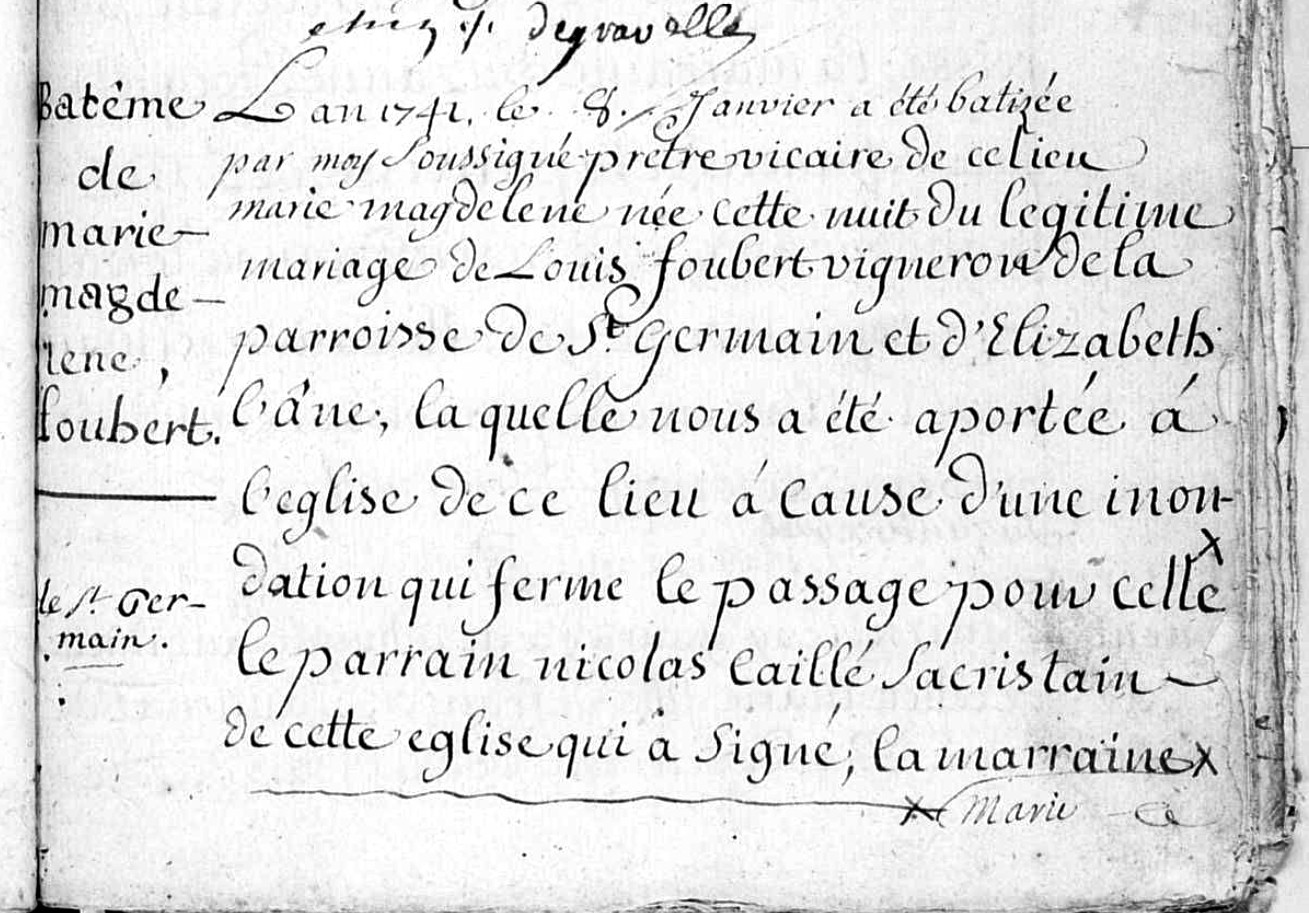 degravelle
Batême
de
marie
magde-
lene,
foubert.
le st Ger-
main.
L'an 1741, le 8. Janvier a été batizée
par moy soussigné prêtre vicaire de ce lieu
marie magdelene née cette nuit du legitime
mariage de Louis foubert vigneron de la
parroisse de St. Germain et d'Elizabeth
l'âne, la quelle nous a été aportée á
l'eglise de ce lieu á cause d'une inon-
dation qui ferme le passage pour celle x
le parrain nicolas caillé sacristain
de cette eglise qui a signé, la marraine x
x Marie